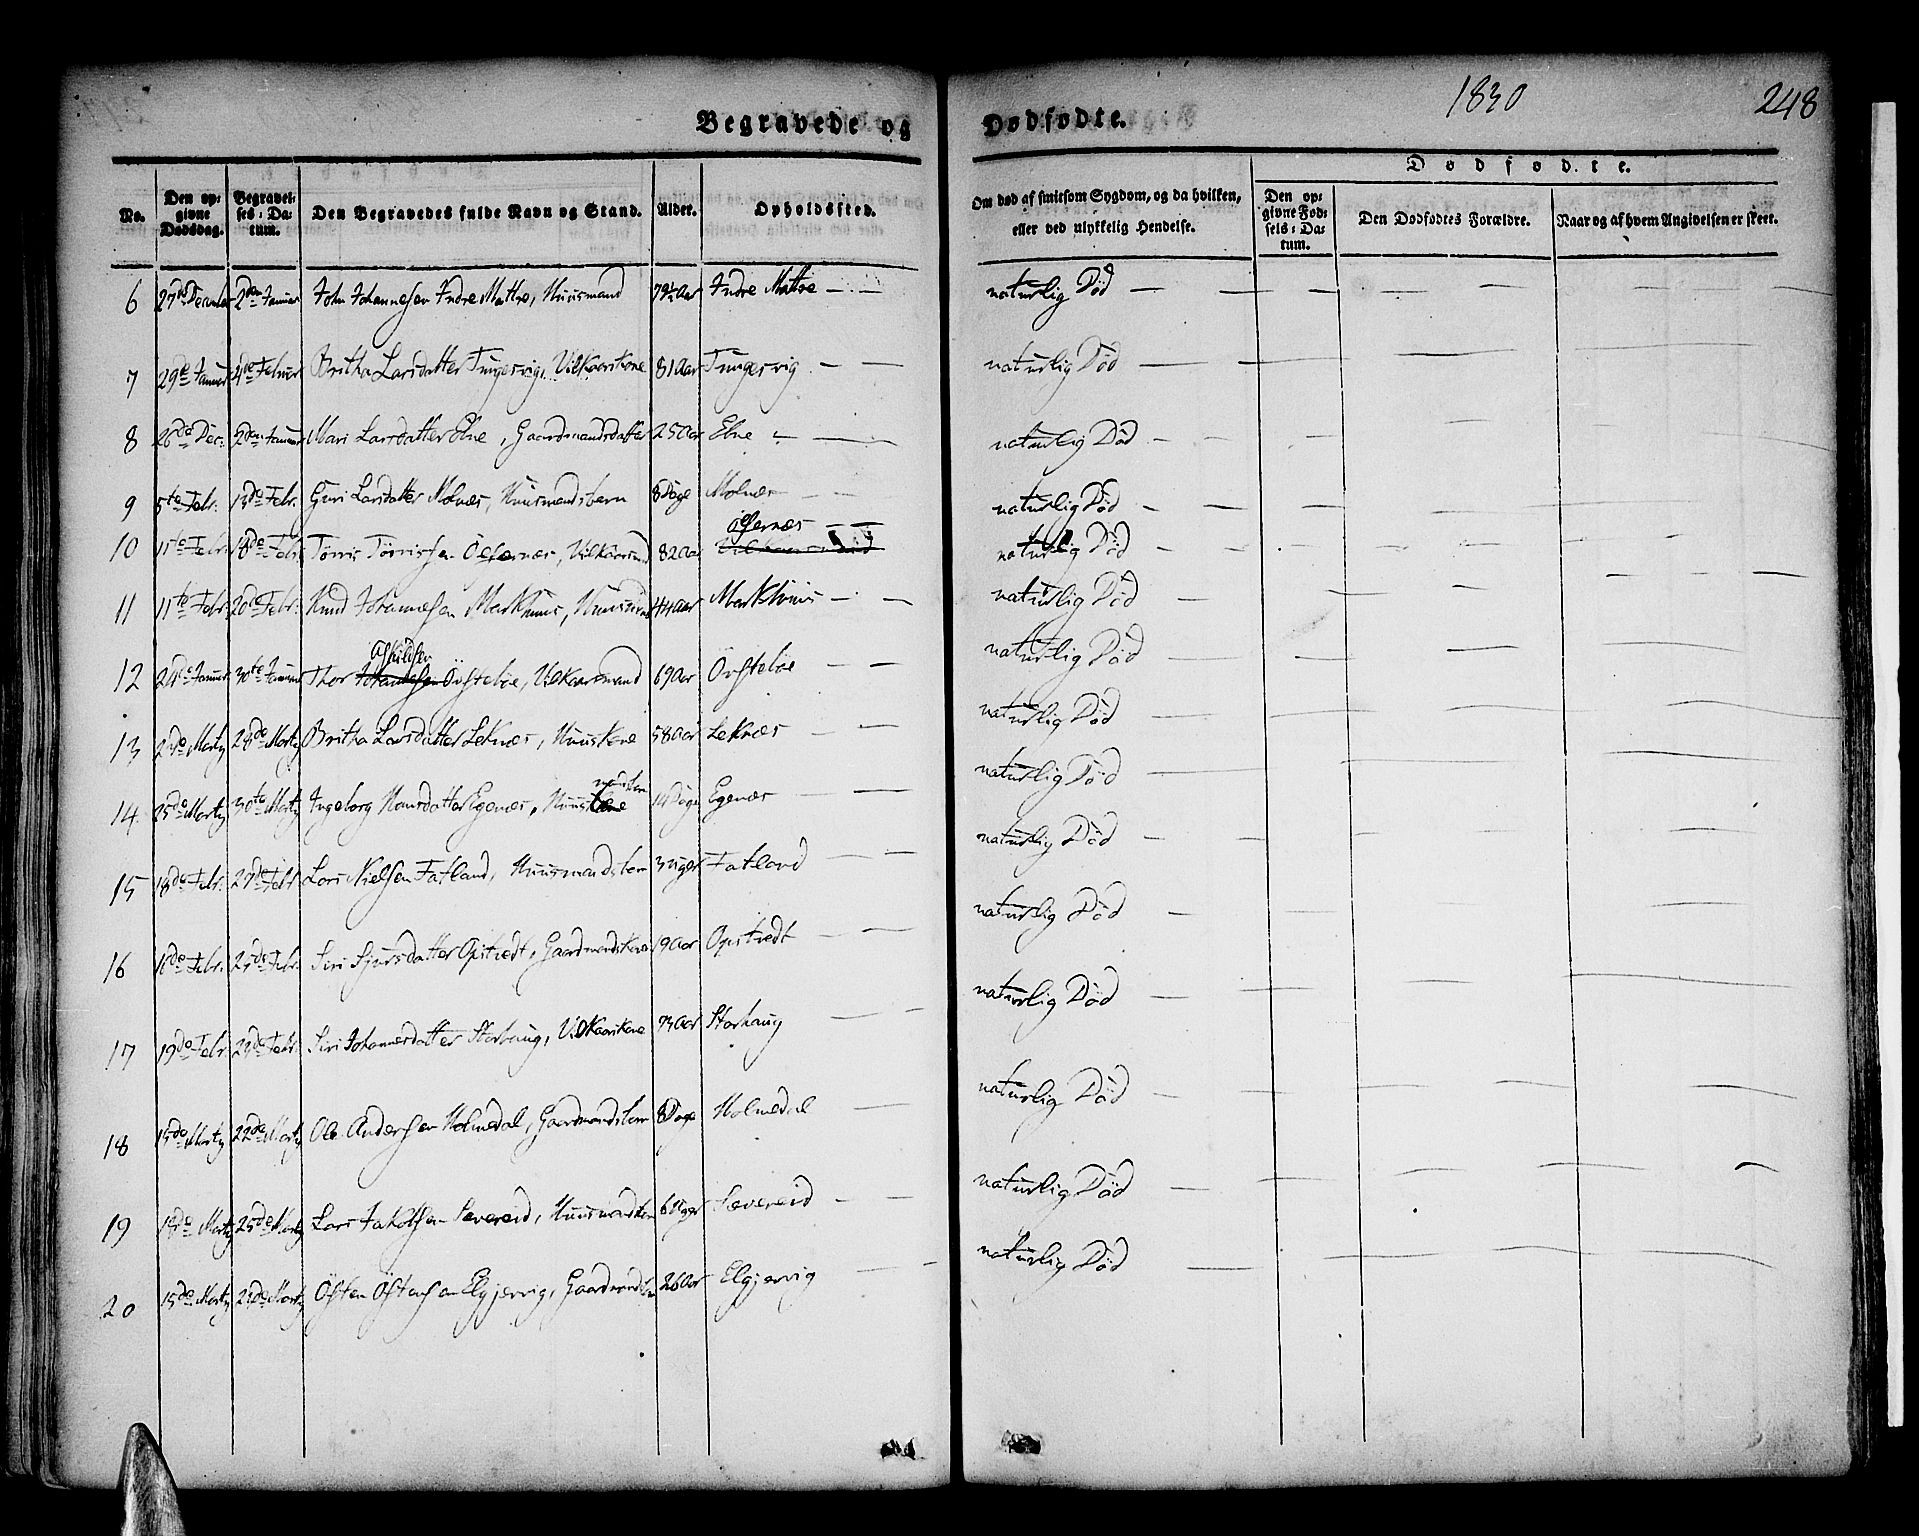 1830
248
Begravede og Dødfødte.
No.
Den opgivne Dødsdag.
Begravelses-Datum.
Den Begravedes fulde Navn og Stand.
Alder.
Opholdssted.
Om død af smitsom Sygdom, og da hvilken, eller ved ulykkelig Hendelse.
Dødfødte.
Den opgivne Fødsels-Datum.
Den Dødfødtes Forældre.
Naar og af hvem Angivelsen er skeet.
6 27de December 2den Januar John Johannesen Indre Mattre, Huusmand 79½ Aar Indre Mattre — naturlig Død —
7 29de Januar 4de Februar Britha Larsdatter Tungesvig, Vilkaarskone 81 Aar Tungesvig — naturlig Død —
8 26de Dec: 2den Januar Mari Larsdatter Ebne, Gaardmandsdatter 25 Aar Ebne — naturlig Død —
9 5te Febr: 13de Febr. Guri Larsdatter Molnæs, Huusmandsbarn 8 Dage Molnæs — naturlig Død —
10 11te Febr: 18de Febr. Tørris Tørrissen Øsernæs, Vilkaarsmand 82 Aar Øsernæs — naturlig Død —
11 11te Febr: 20de Febr. Knud Johannesen Markhuus, Huusmand 44 Aar Markhuus — naturlig Død —
12 24de Januar 30te Januar Thor Askildsen Øvstebøe, Vilkaarsmand 69 Aar Øvstebøe — naturlig Død —
13 Marty 28de Marty Britha Larsdatter Leknæs, Huuskone 58 Aar Leknæs — naturlig Død —
14 25de Marty 30te Marty Ingeborg Hansdatter Egenæs, Huusmandsbarn 14 Dage Egenæs — naturlig Død —
15 18de Febr. Febr. Lars Nielsen Fatland, Huusmandsbarn 3 Uger Fatland — naturlig Død —
16 16de Febr. Febr. Siri Sjursdatter Opstvedt, Gaardmandskone Aar Opstvedt — naturlig Død —
17 19de Febr. Febr. Siri Johannesdatter Storhaug, Vilkaarskone 73 Aar Storhaug — naturlig Død —
18 15de Marty 22de Marty Ole Andersen Holmedal, Gaardmandsbarn 8 Dage Holmedal — naturlig Død —
19 18de Marty 25de Marty Lars Jakobsen Sævereid, Huusmandsbarn 6 Uger Sævereid — naturlig Død —
20 15de Marty Marty Østen Østensen Elgjervig, Gaardmandsbarn 26 Aar Elgjervig — naturlig Død —